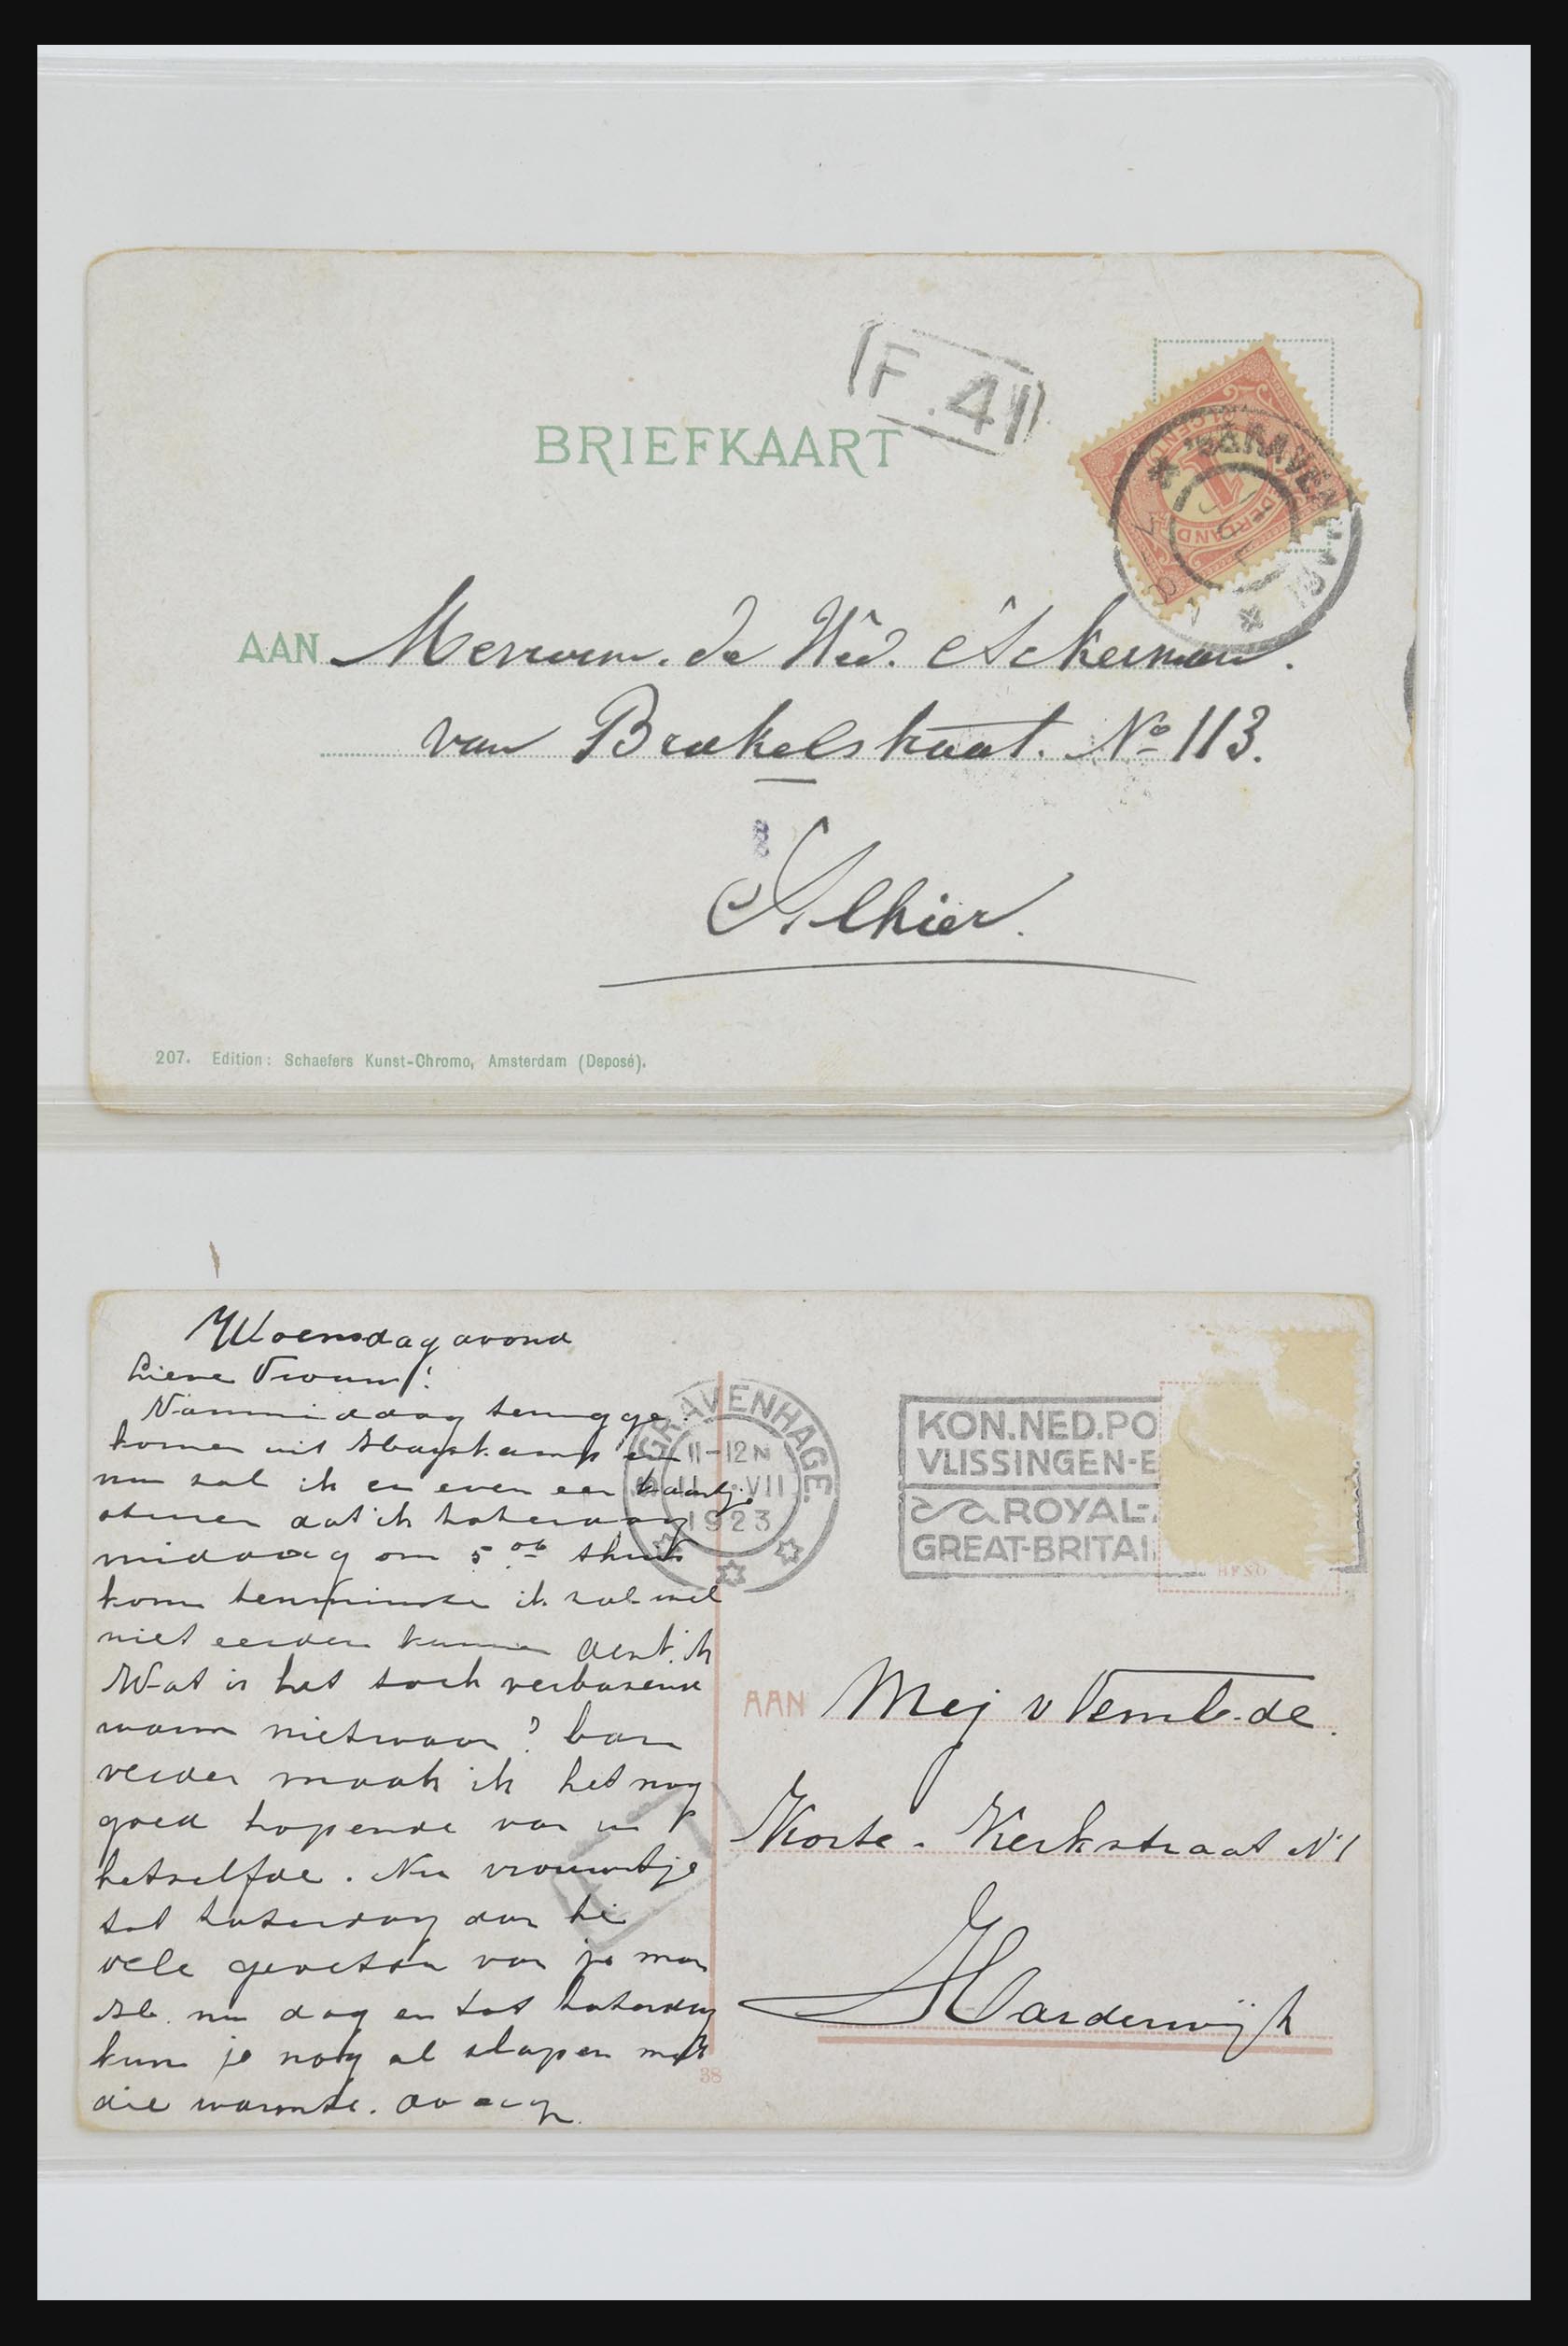 F.41
BRIEFKAART
'S GRAVENHAGE
NEDERLAND
1
AAN Mevrouw. de Wed. Ackerman.
van Brakelstraat. No 113.
Alhier.
207. Edition: Schaefers Kunst-Chromo, Amsterdam (Deposé).
Woensdagavond
Lieve Vrouw!
Vanmiddag terugge
komen uit en
nu zal ik er even een kaartje
dat ik zaterdag
middag om 5.06 thuis
kom tenminste ik zal wel
niet eerder kunnen denk ik
Wat is het toch verbazend
warm nietwaar?
verder maak ik het nog
goed hopende van u
hetzelfde. Nu vrouwtje
tot zaterdag dan
vele groeten van je man
nu dag en tot zaterdag
kun je nog al slapen met
die warmte.
'S GRAVENHAGE.
11-12 N
11.VII
1923
KON.NED.PO
VLISSINGEN-E
ROYAL-
GREAT-BRITAI
AAN Mej v
Korte-Kerkstraat N 1
Harderwijk
38